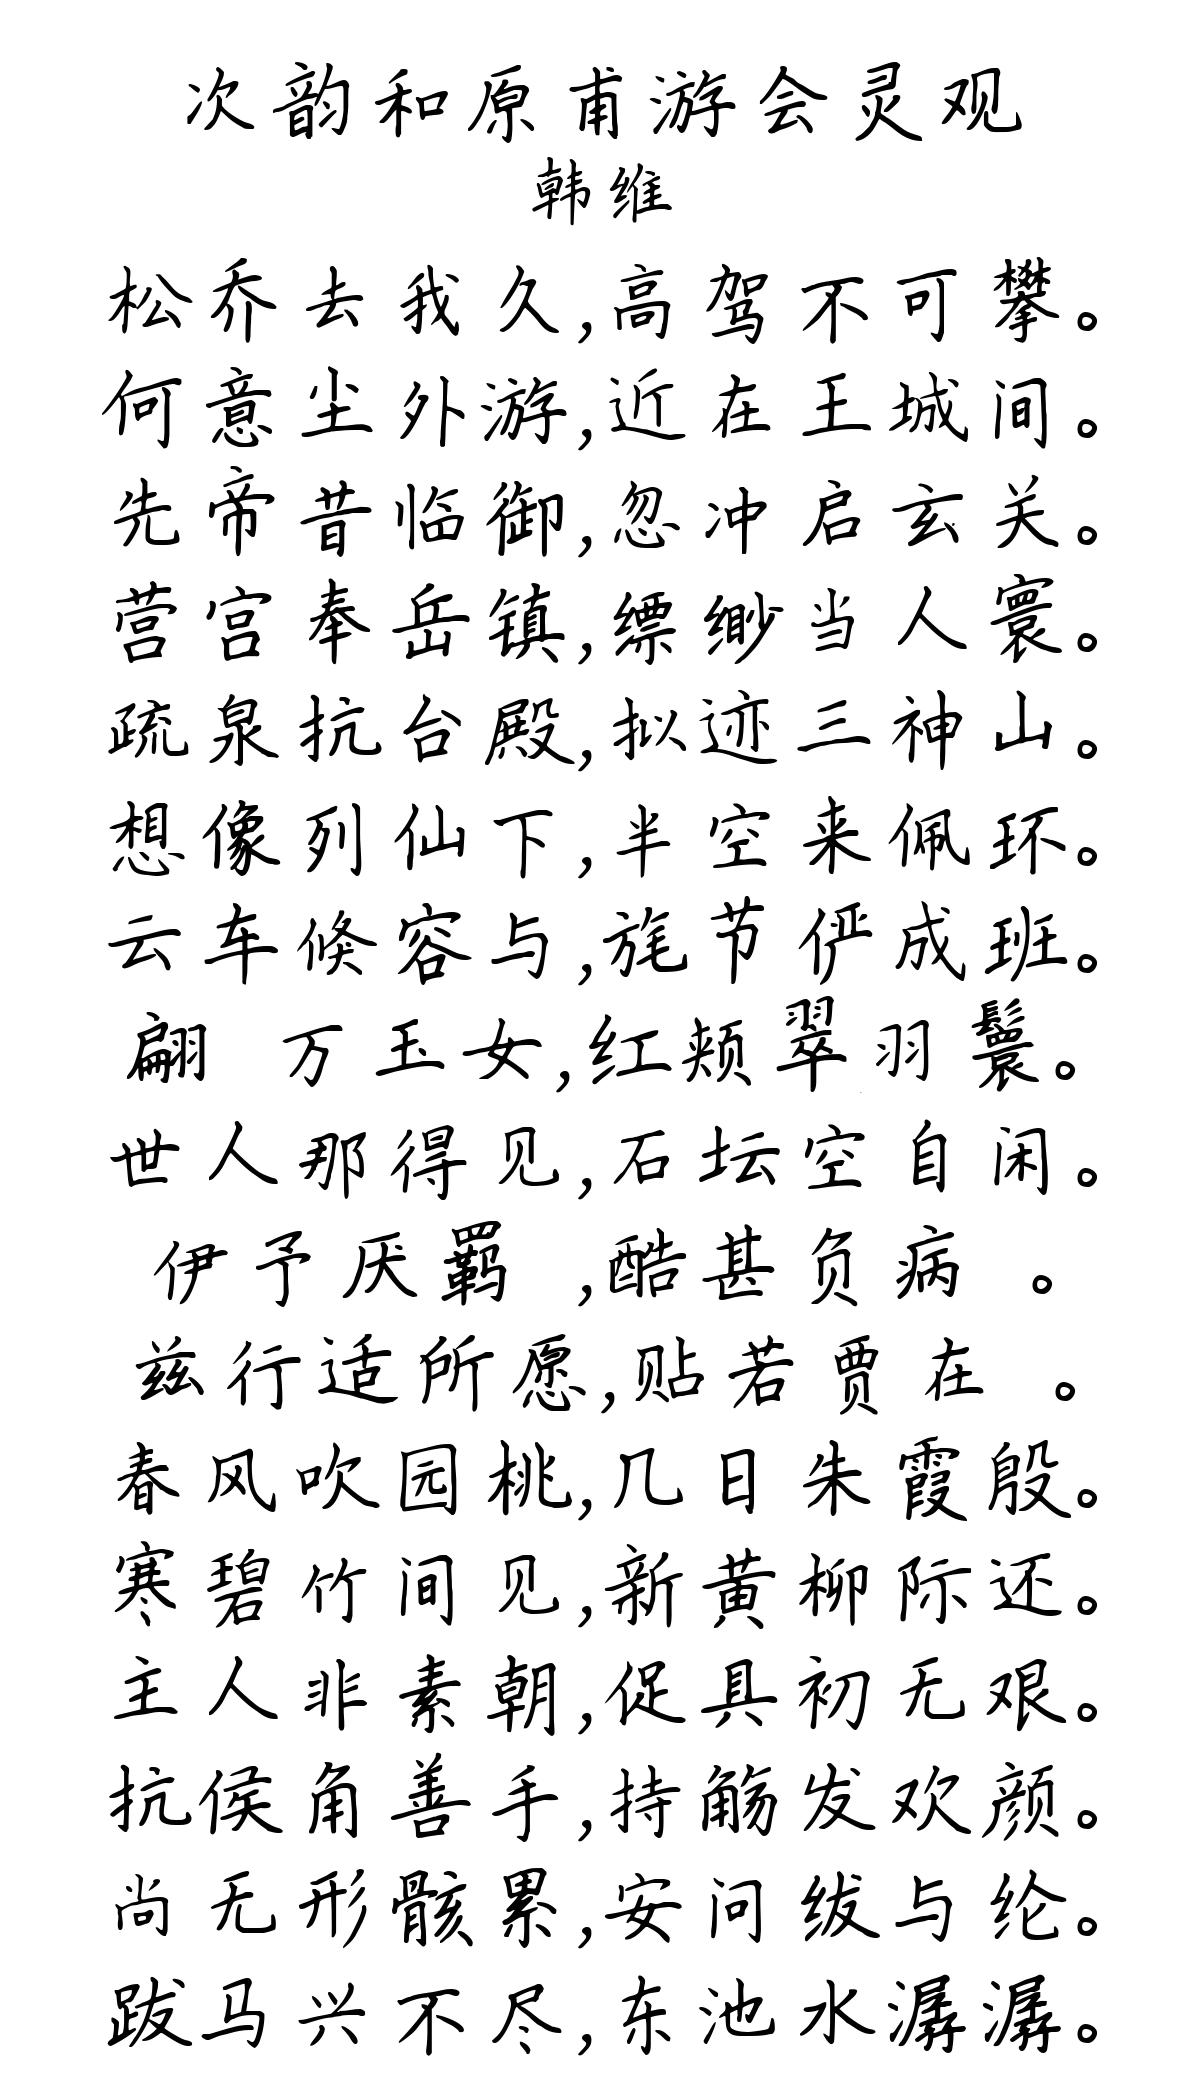 次韵和原甫游会灵观
韩维
松乔去我久,高驾不可攀。
何意尘外游,近在王城间。
先帝昔临御,忽冲启玄关。
营宫奉岳镇,缥缈当人寰。
疏泉抗台殿,拟迹三神山。
想像列仙下,半空来佩环。
云车倏容与,旄节俨成班。
翩 万玉女,红颊翠羽鬟。
世人那得见,石坛空自闲。
伊予厌羁 ,酷甚负病 。
兹行适所愿,贴若贾在 。
春风吹园桃,几日朱霞殷。
寒碧竹间见,新黄柳际还。
主人非素朝,促具初无艰。
抗侯角善手,持觞发欢颜。
尚无形骸累,安问绂与纶。
跋马兴不尽,东池水潺潺。